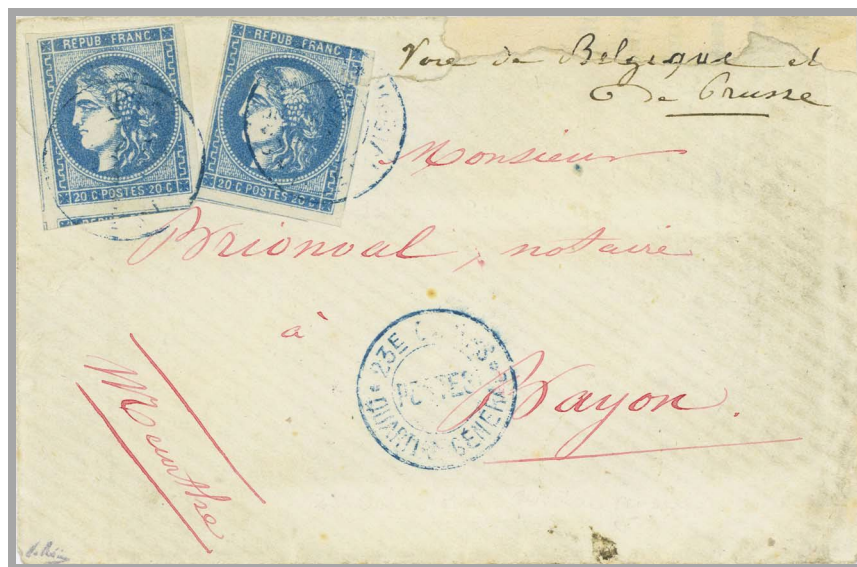 REPUB FRANC
20 C POSTES 20 C
REPUB FRANC
20 C POSTES 20 C
Voie de Belgique et
de Prusse
Monsieur
Brionval, notaire
à
Bayon.
Meurthe
23E CORPS
QUARTIER GÉNÉRAL